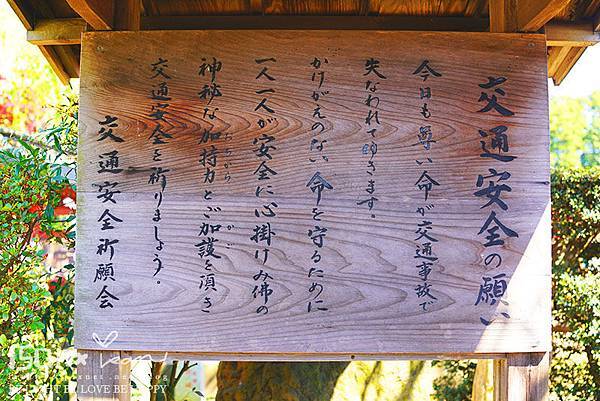 交通安全の願い
今日も尊い命が交通事故で
失なわれて ゆきます。
かけがえのない命を守るために
一人一人が安全に心掛けみ佛の
神秘な加持力とご加護を頂き
交通安全を祈りましょう。
交通安全祈願会
LOVE BE HAPPY